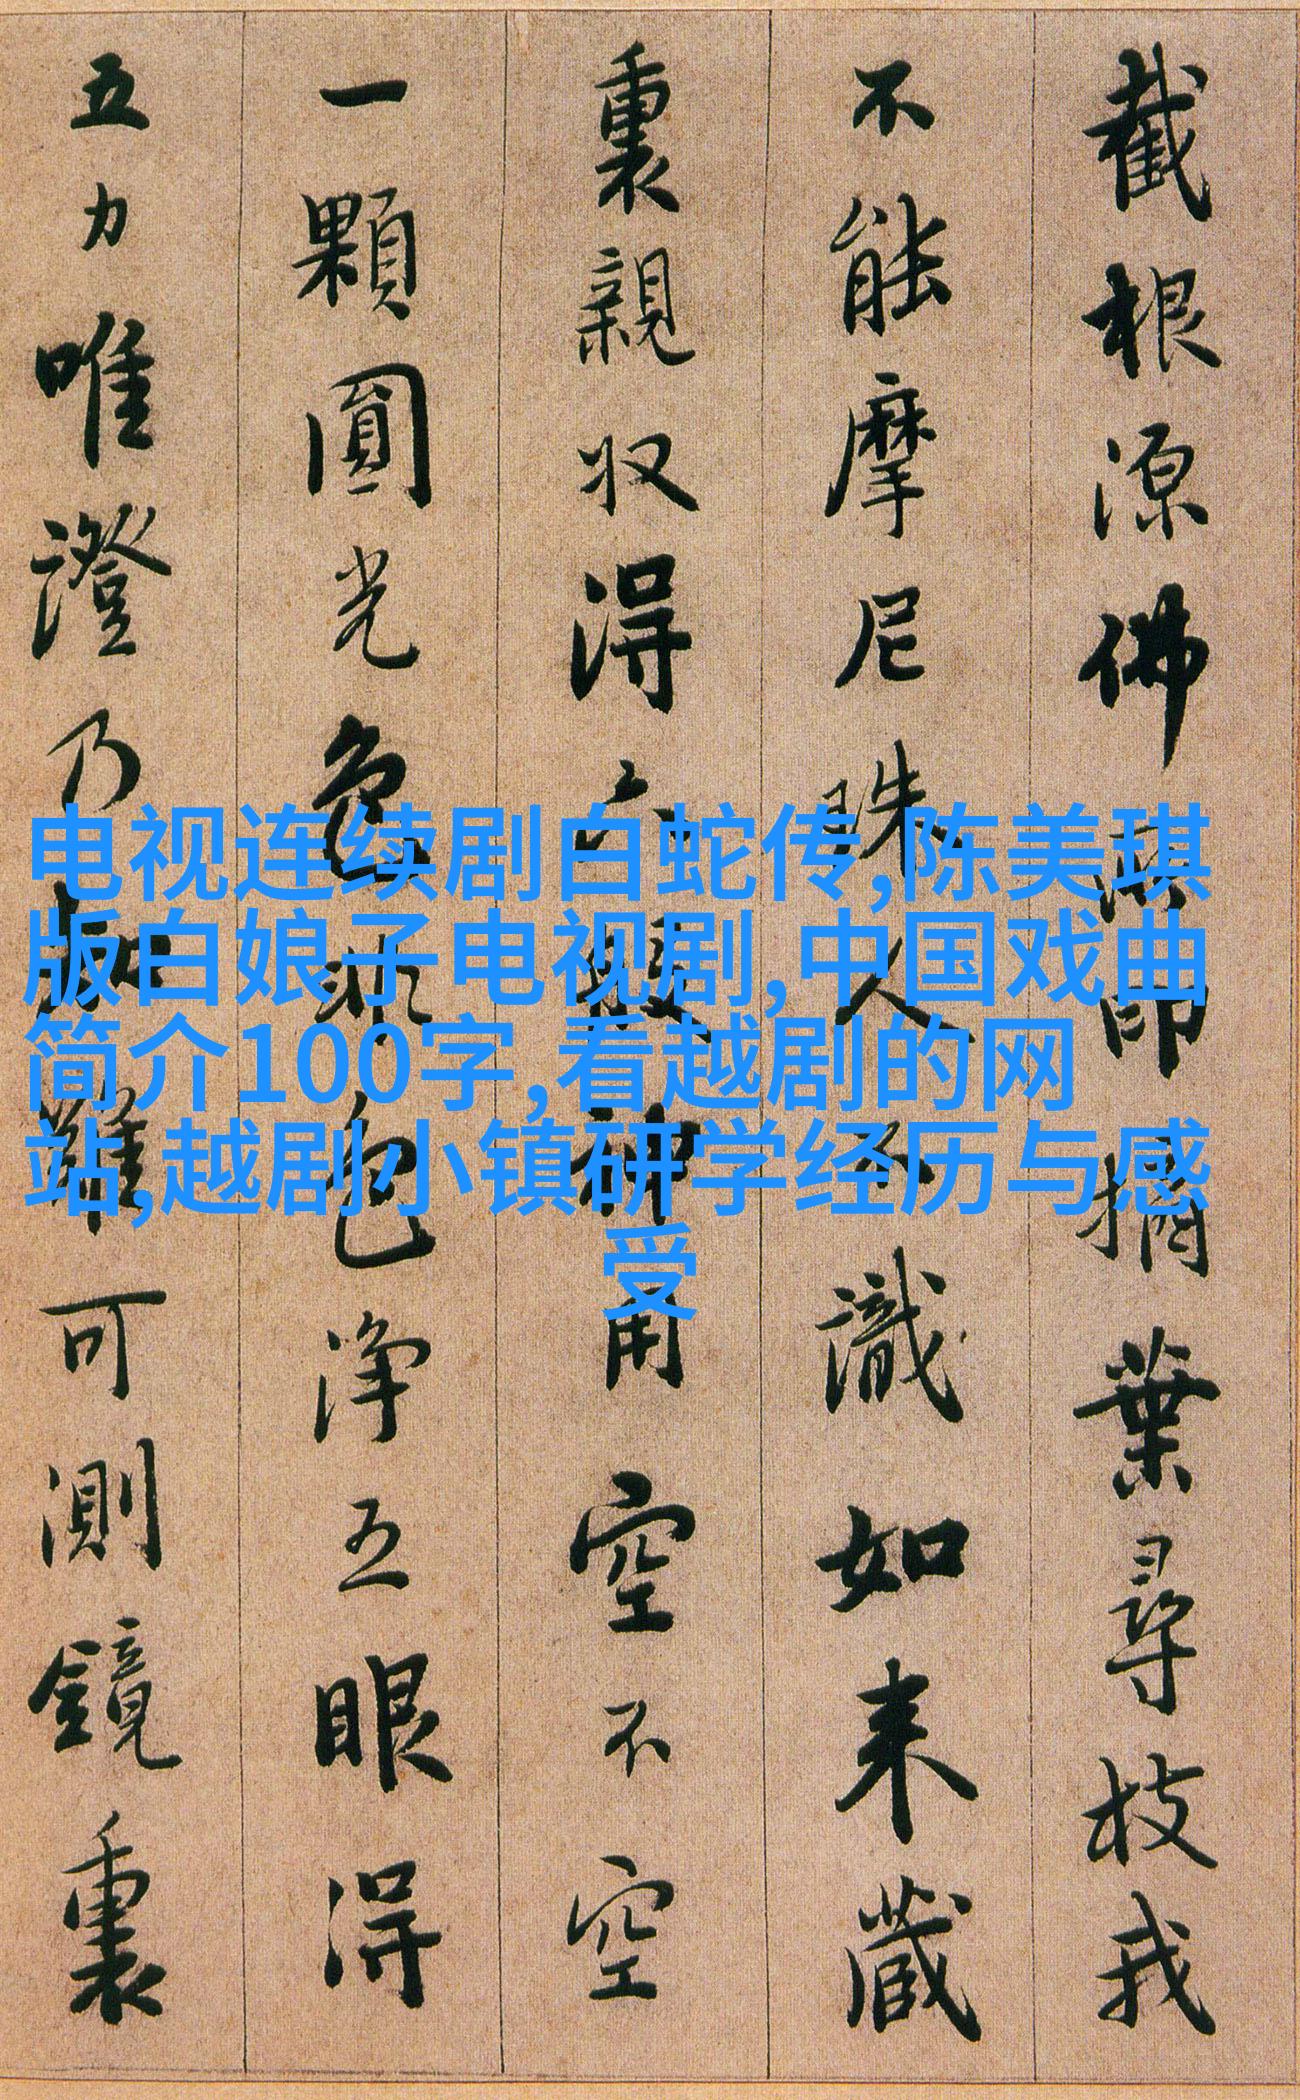 截根源佛所印摘葉尋枝我
不能摩尼珠人不識如來藏
裏親収得六般神用空不空
一顆圓光色非色淨五眼得
五力唯證乃知難可測鏡裏
电视连续剧白蛇传,陈美琪
版白娘子电视剧,中国戏曲
简介100字,看越剧的网
站,越剧小镇研学经历与感
受